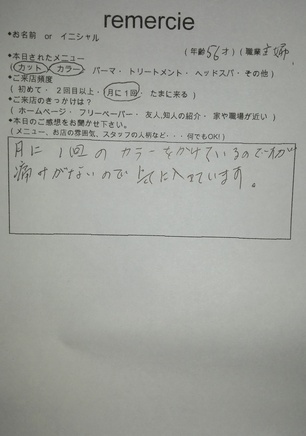 remercie
*お名前 or イニシャル
(年齢56才)(職業 主婦)
*本日されたメニュー
(カット・カラー・パーマ・トリートメント・ヘッドスパ・その他)
*ご来店頻度
(初めて・2回目以上・月に1回・たまに来る)
*ご来店のきっかけは?
(ホームページ・フリーペーパー・友人,知人の紹介・家や職場が近い)
*本日のご感想をお聞かせ下さい。
(メニュー、お店の雰囲気、スタッフの人柄など・・・何でもOK!)
月に1回のカラーをかけているのですが
痛みがないので 気に入っています。